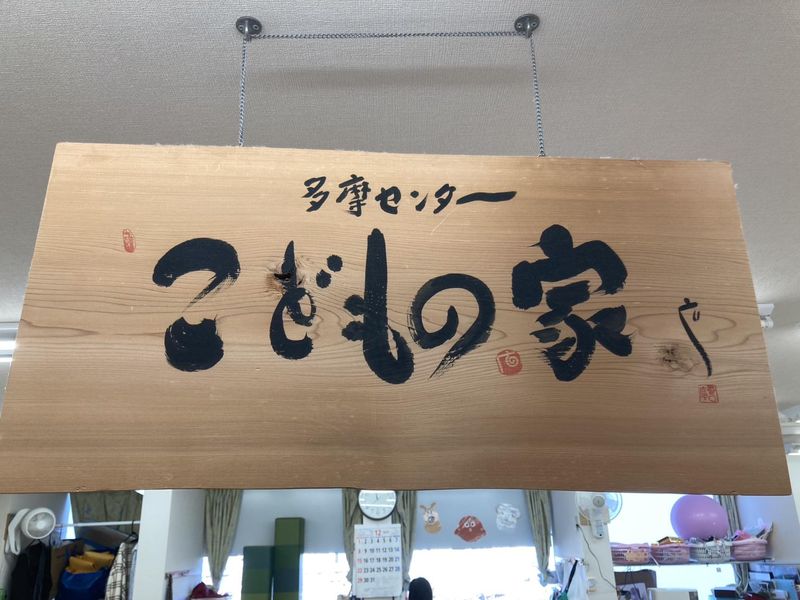 多摩センター
こどもの家
12